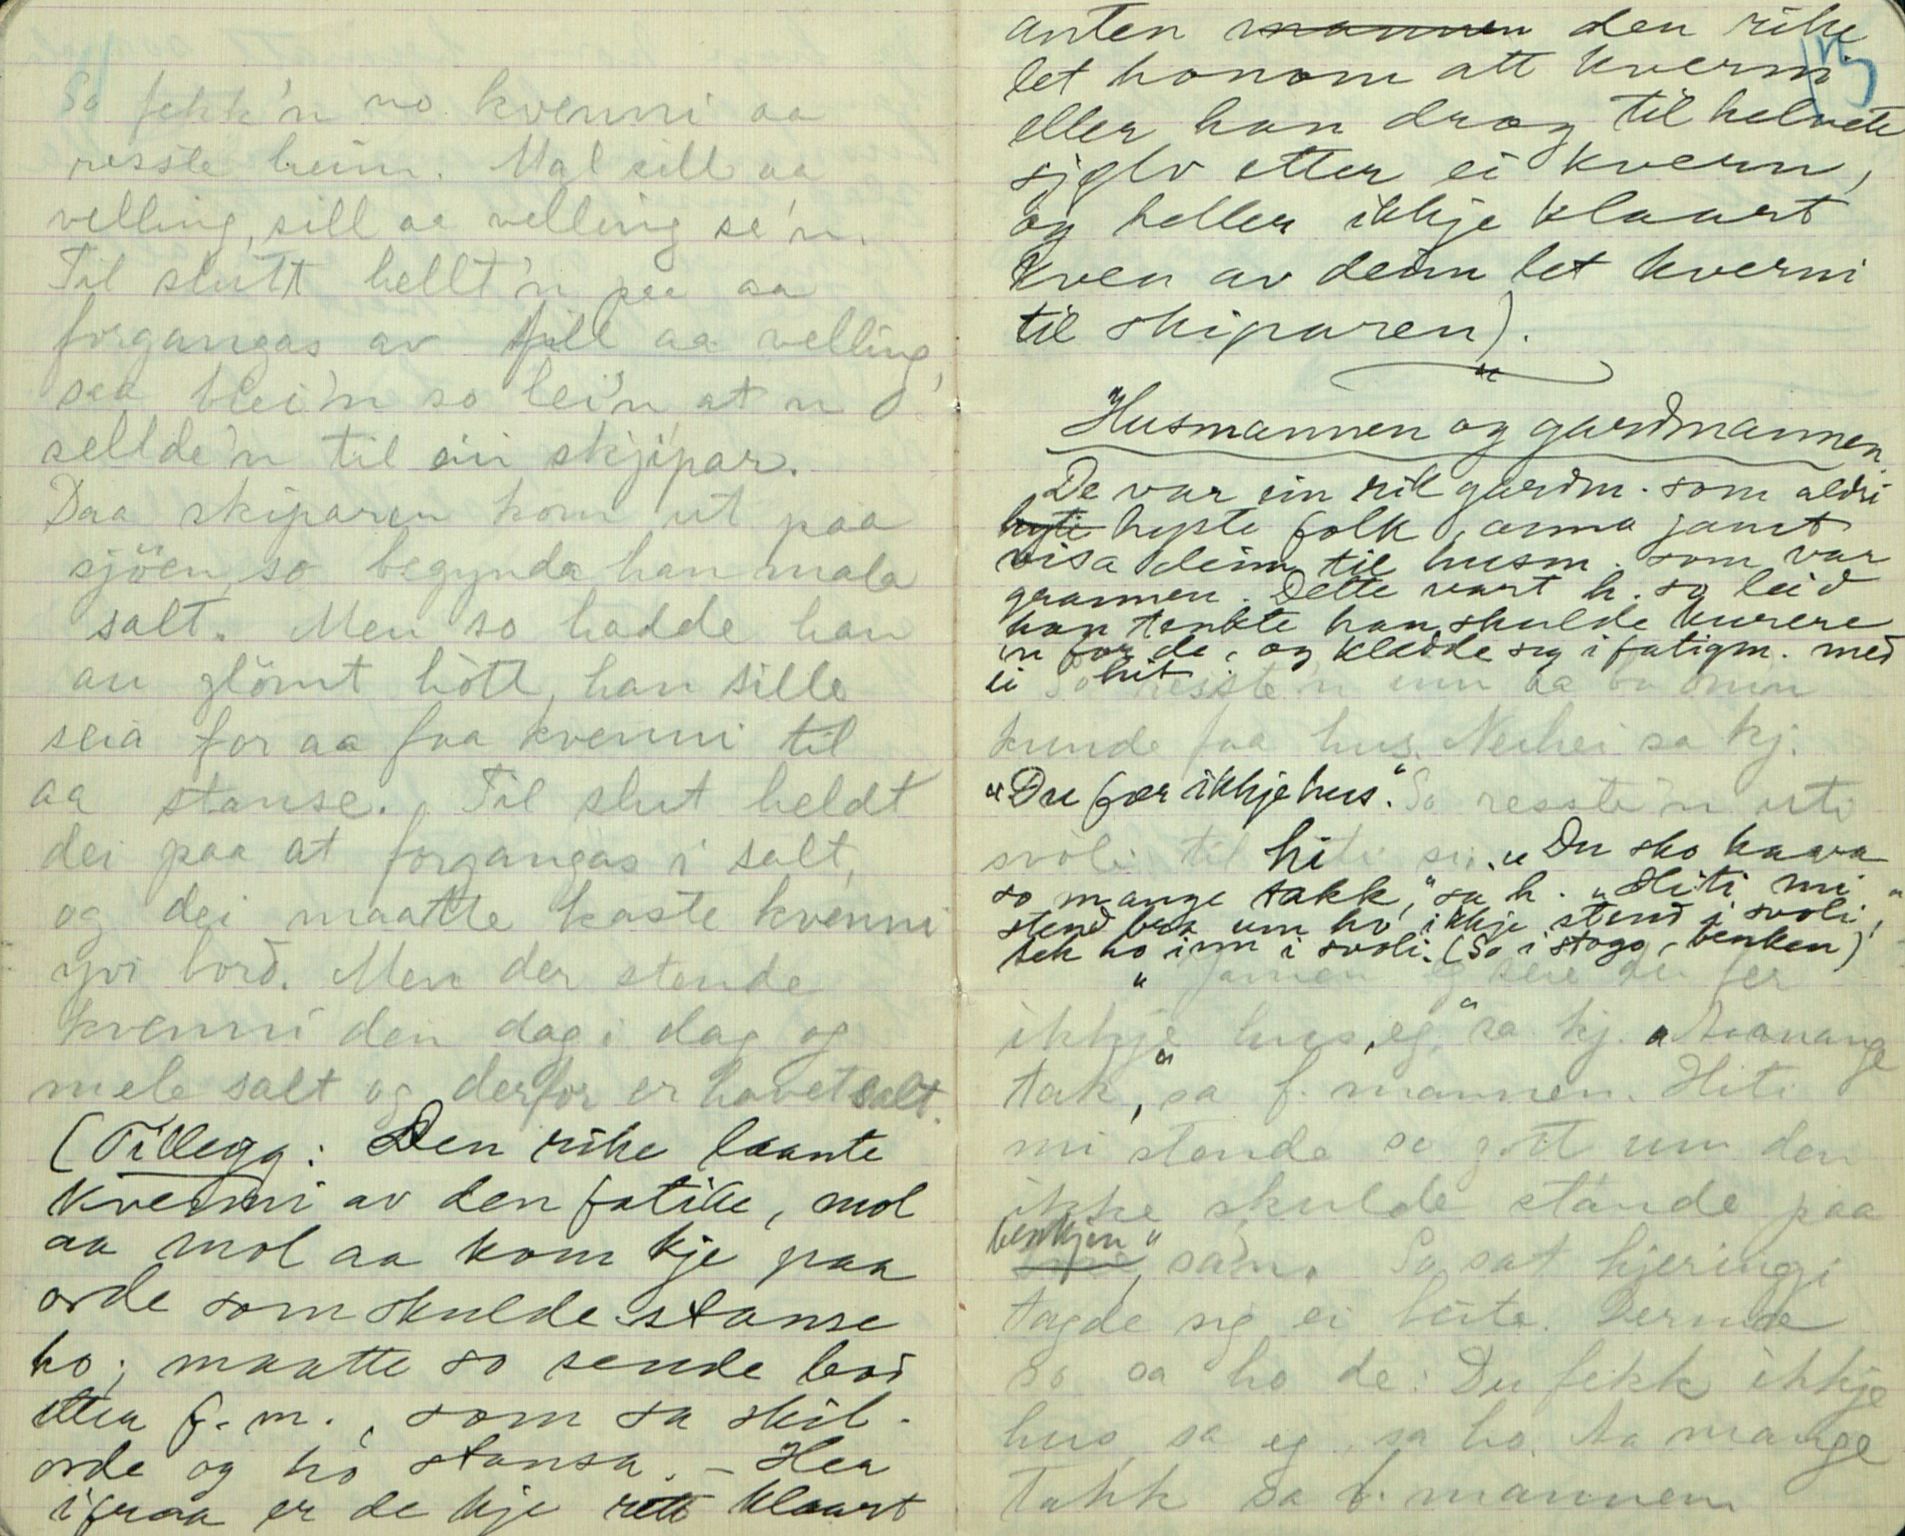 So fekk'n no kvenni aa
resste heim. Mal sill aa
velling, sill aa velling se'n.
Til slutt hellt'n paa aa
forgangas av sill aa velling,
saa blei'n so lei'n at n
sellde'n til ein skjipar.
Daa skiparen kom ut paa
sjöen, so begynda han mala
salt. Men so hadde han
au glömt hött han sille
seia for aa faa kvenni til
aa stanse. Til slut heldt
dei paa at forgangas i salt,
og dei maatte kaste kvenni
yvi bord. Men der stende
kvenni den dag i dag og
mele salt og derfor er havet salt.
(Tillegg: Den rike laante
kverni av den fatike, mol
aa mol aa kom kje paa
orde som skulde stanse
ho; maatte so sende bod
etter f.m., som sa skil-
orde og ho stansa. – Her
ifraa er de kje rett klaart
anten mannen den rike
let honom att kverni
eller han drog til helvete
sjølv etter ei kvern,
og heller ikkje klaart
kven av deim let kverni
til skiparen).
13
Husmannen og gardmannen.
De var ein rik gardm. som aldri
hyste folk, anna jamt
visa deim til husm. som var
grannen. Dette vart h. so leid
han tenkte han skulde kurere
'n for de, og kledde seg i fatigm. med
ei hit. So resste'n inn aa ba omm
kunde faa hus. Neihei sa kj.
"Du fær ikkje hus." So resste'n uti
svoli til hiti si. "Du sko haava
so mange takk," sa h. "Hiti mi
stend bra um ho ikkje stend i svoli,"
tek ho inn i svoli. (So i stogo, benken)
"Jamen eg seie du fer
ikkje hus, eg," sa kj. "Aa mange
tak," sa f. mannen. Hiti
mi stende so gott um den
ikke skulde stande paa
benkjen" sa'n. So sat kjeringi
tagde sig ei bite.
So sa ho de: Du fekk ikkje
hus, sa eg, sa ho. Aa mange
takk sa f. mannen